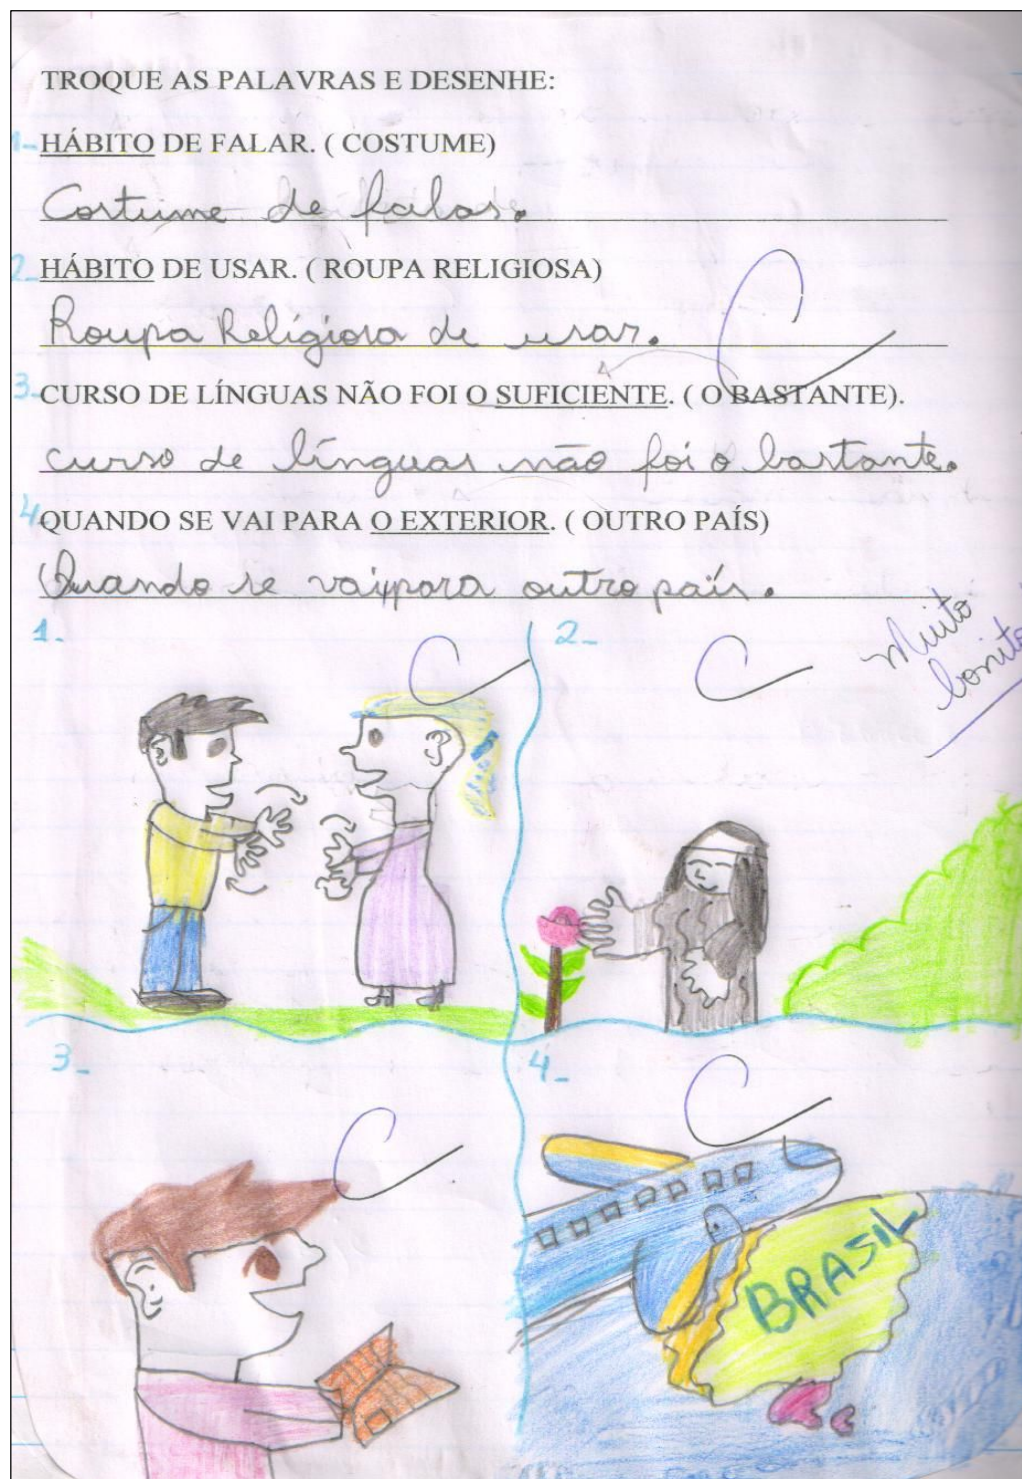 TROQUE AS PALAVRAS E DESENHE:
1- HÁBITO DE FALAR. ( COSTUME)
Costume de falar.
2- HÁBITO DE USAR. ( ROUPA RELIGIOSA)
Roupa Religiosa de usar.
3- CURSO DE LÍNGUAS NÃO FOI O SUFICIENTE. ( O BASTANTE).
curso de línguas não foi o bastante.
4 QUANDO SE VAI PARA O EXTERIOR. ( OUTRO PAÍS)
Quando se vai para outro país.
1- 2-
Muito
bonito
3- 4-
BRASIL